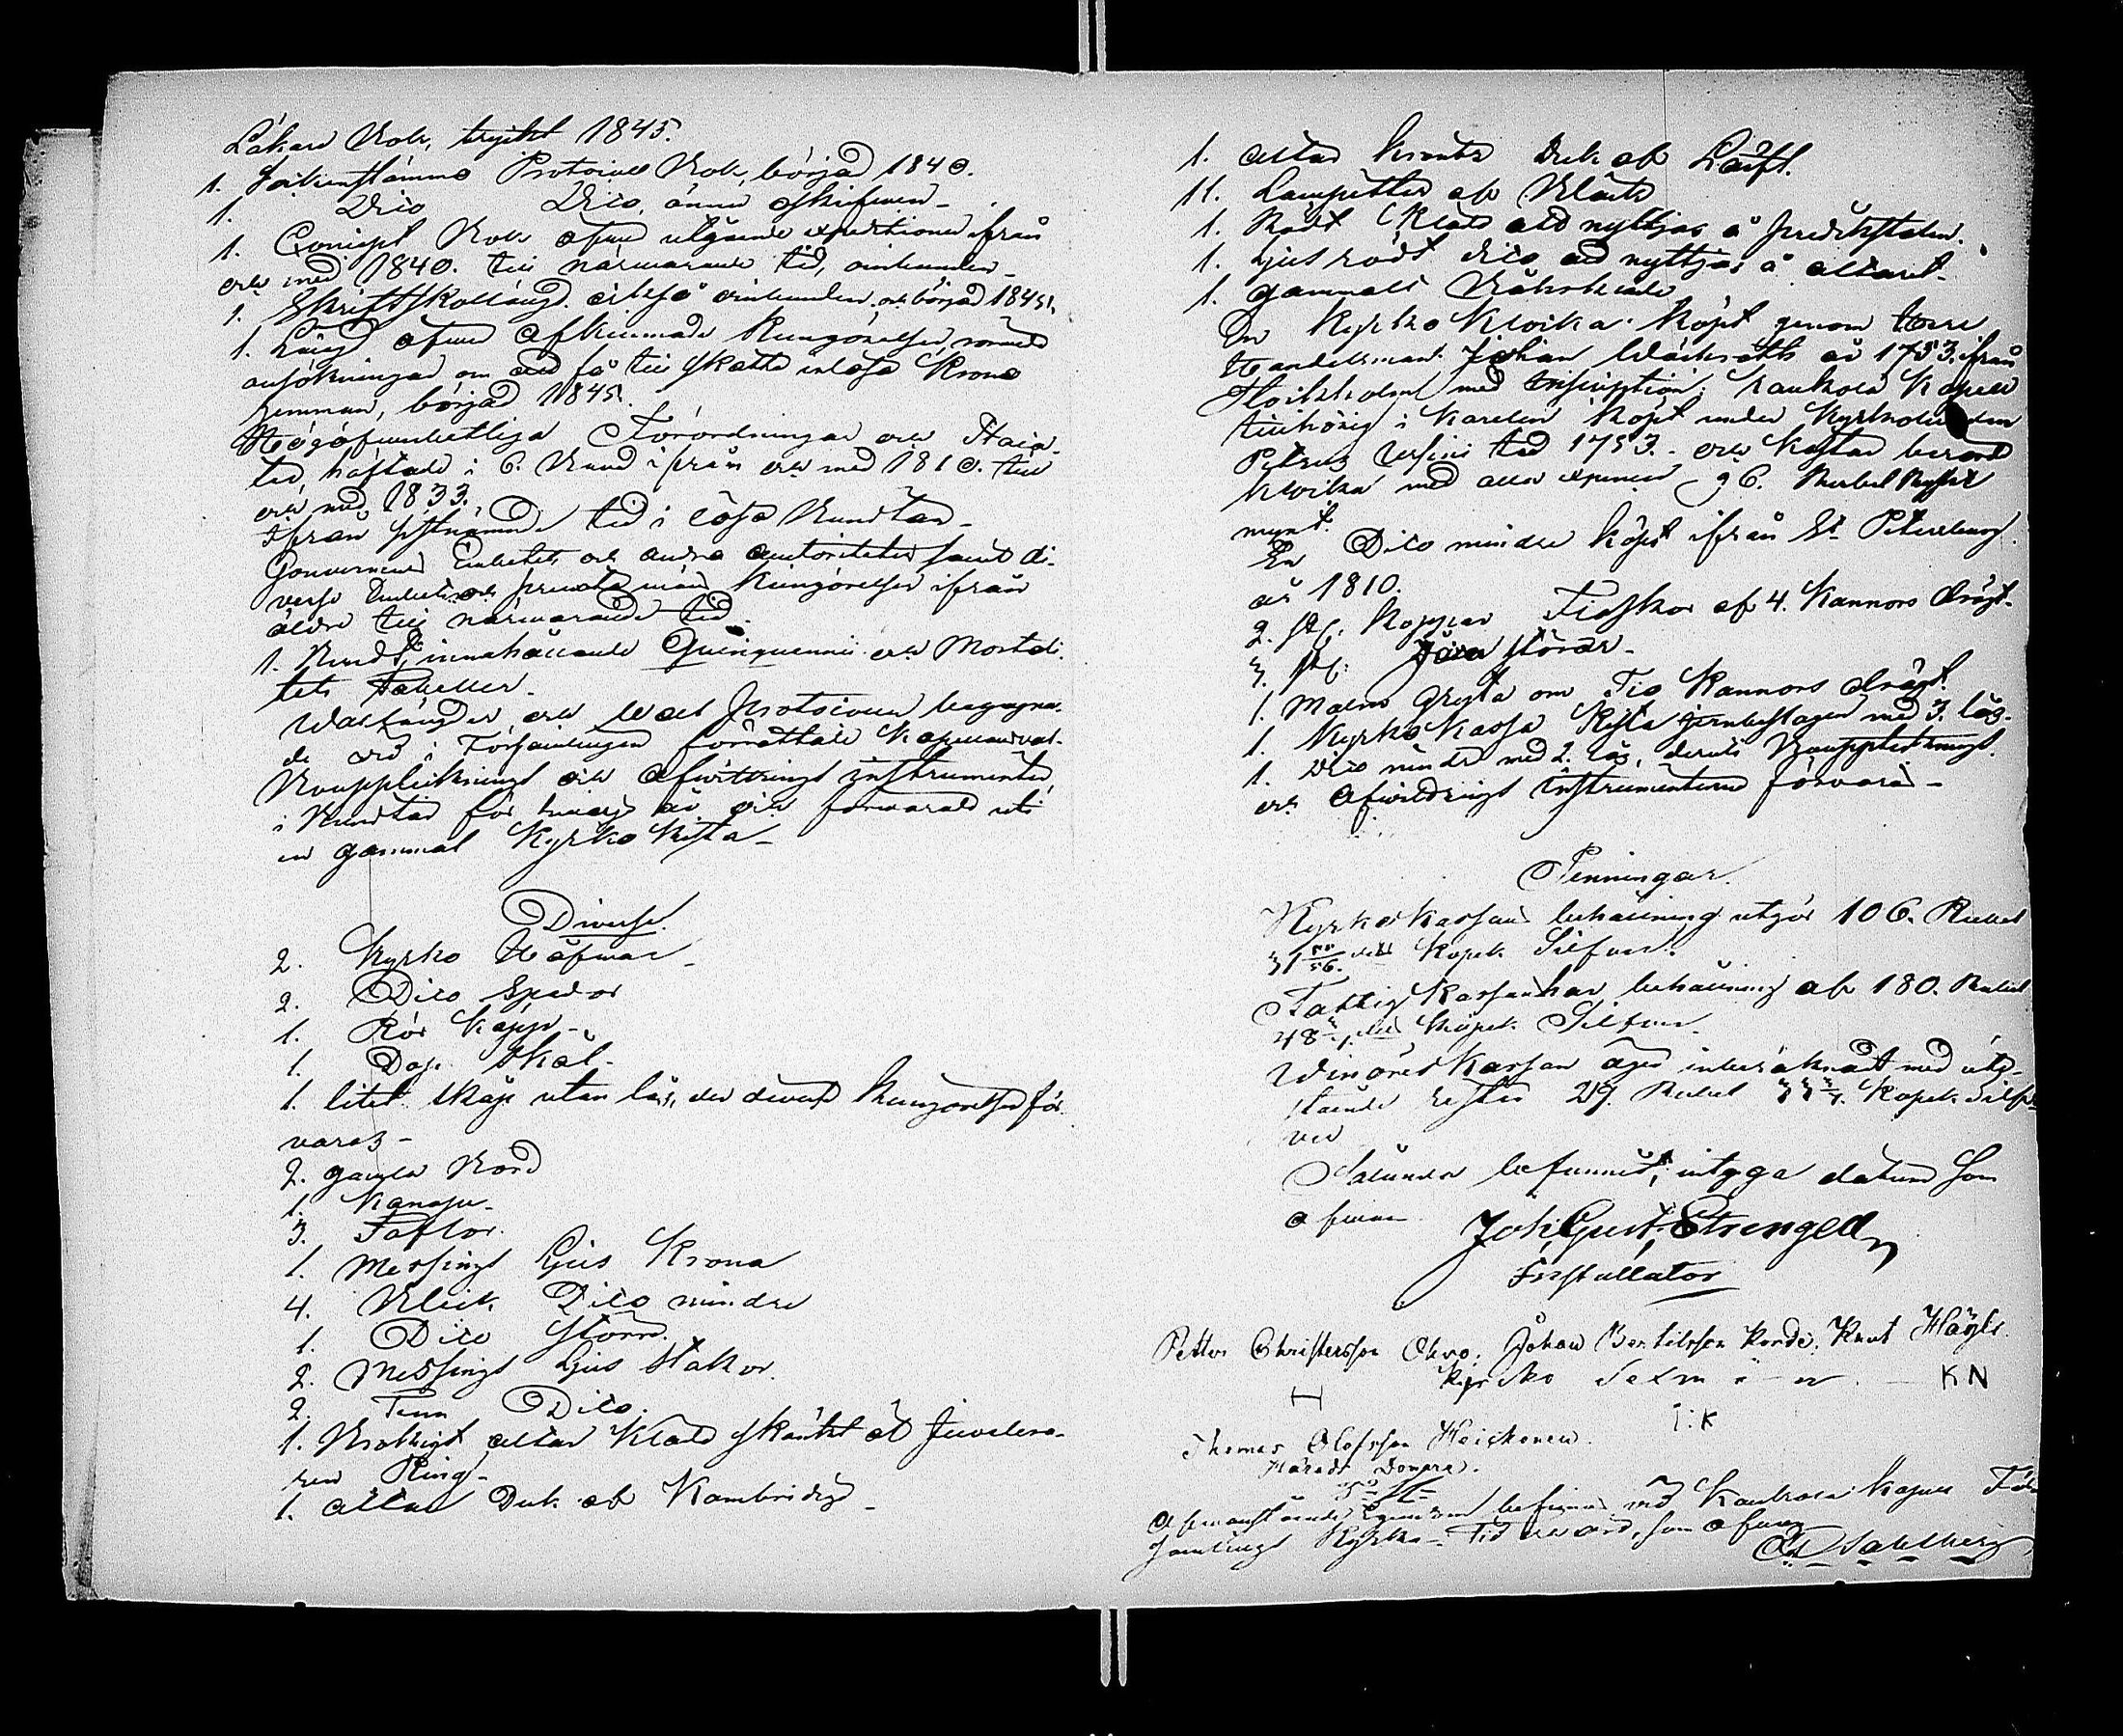 Läkare Bok, trykt 1845.
1. Sockenstämmo Protocolls Bok, började 1840.
1. Dito Dito, ännu oskrifwen
1. Concept Bok öfwer utgående expeditioner ifrån
och med 1840. till närwarande tid, oinbunden
1. Skriftskollängd också oinbunden och började 1845.
1. Längd öfwer Afkunnade Kungörelser, rörande
ansökningar om att få till skatte inlösa Krono
hemman, började 1845.
Högöfwerhetliga Förordningar och Placa-
ter, häftade i 6. Band ifrån och med 1810. till
och med 1833.
Ifrån sistnämnde tid i lösa Buntar
Gouvernements Embetets och andra autoriteters samt di-
verse Embets och privata män Kungörelser ifrån
äldre till närwarande tid.
1. Bundt, innehållande Quinquennii och Mortali-
tets Tabeller.
Wallängder och Wal Protocoller begagna-
de wid i Församlingen förrättade Kapellanswal
Kouppleknings och Afwittrings instrumenter
i Buntar för hwarje år och förwarade uti
en gammal Kyrko Kista
Diverse.
2. Kyrko Håfwar
2. Dito Spador
1. Rör Käpp
1. Dop Skål
1. litet skåp utan lås, der diverse Kungörelser för-
varas
2. gamla Bord
1. Kanape
3. Taflor.
1. Messings Ljus Krona
4. Bleck Dito mindre
1. Dito större.
2. Messings Ljus Stakar
2. Tenn Dito.
1. Brokigt altar Kläde skänkt af Juvelera-
ren Ring
1. altar Duk af Kambridge
1. altar Krants Duk af Läift.
11. Lampetter af Bleck
1. Rödt Kläde att nyttjas å predikstolen.
1. Ljus rödt dito att nyttjas å altaret
1. gammalt Bårkläde
En Kyrko Klocka köpt genom Herr
Handelsman Johan Wäckroth år 1753. ifrån
Stockholm med inscription: Kaukola Kapell
tillhörig i Karelen köpt under Kyrkoherden
Petrus tid 1753. och Kostar berörde
Klocka med alla expenser 96. Rubel Ryskt
mynt.
En Dito mindre köpt ifrån St Petersburg
år 1810.
2. st. Koppar Flaskor af 4. Kannors drägt.
3. st. Järn störar
1. Malms Gryta om Tio Kannors drägt.
1. Kyrko Kassa Kista jernbeslagen med 3. lås.
1. Dito mindre med 2. lås, deruti Koupplecknings
och Afwittrings instrumenterne förvaras
Penningar.
Kyrko Kassans behållning utgör 106. Rubel
31 dels Kopek Silfwer.
Fattig Kassan har behållning af 180. Rubel
48 dels Kopek Silfwer.
Winörs Kassan äger inberäknadt med ute-
stående rester 29. Rubel 33 Kopek Silf-
ver
Sålunda befunnit, intyga datum som
ofwan
Joh: Gust: Strengell
Installator
Petter Christersson Ohvo. Johan Bertilsson Korde. Knut Häyhä.
Kyrko Sexmän. KN
H
I:K
Thomas Olofsson Heiskanen.
Härads Domare.
Ofwanstående Egendom befinnes med Kaukola Kapell För-
samlings Kyrka. Tid och ort, som ofwan
Sahlberg